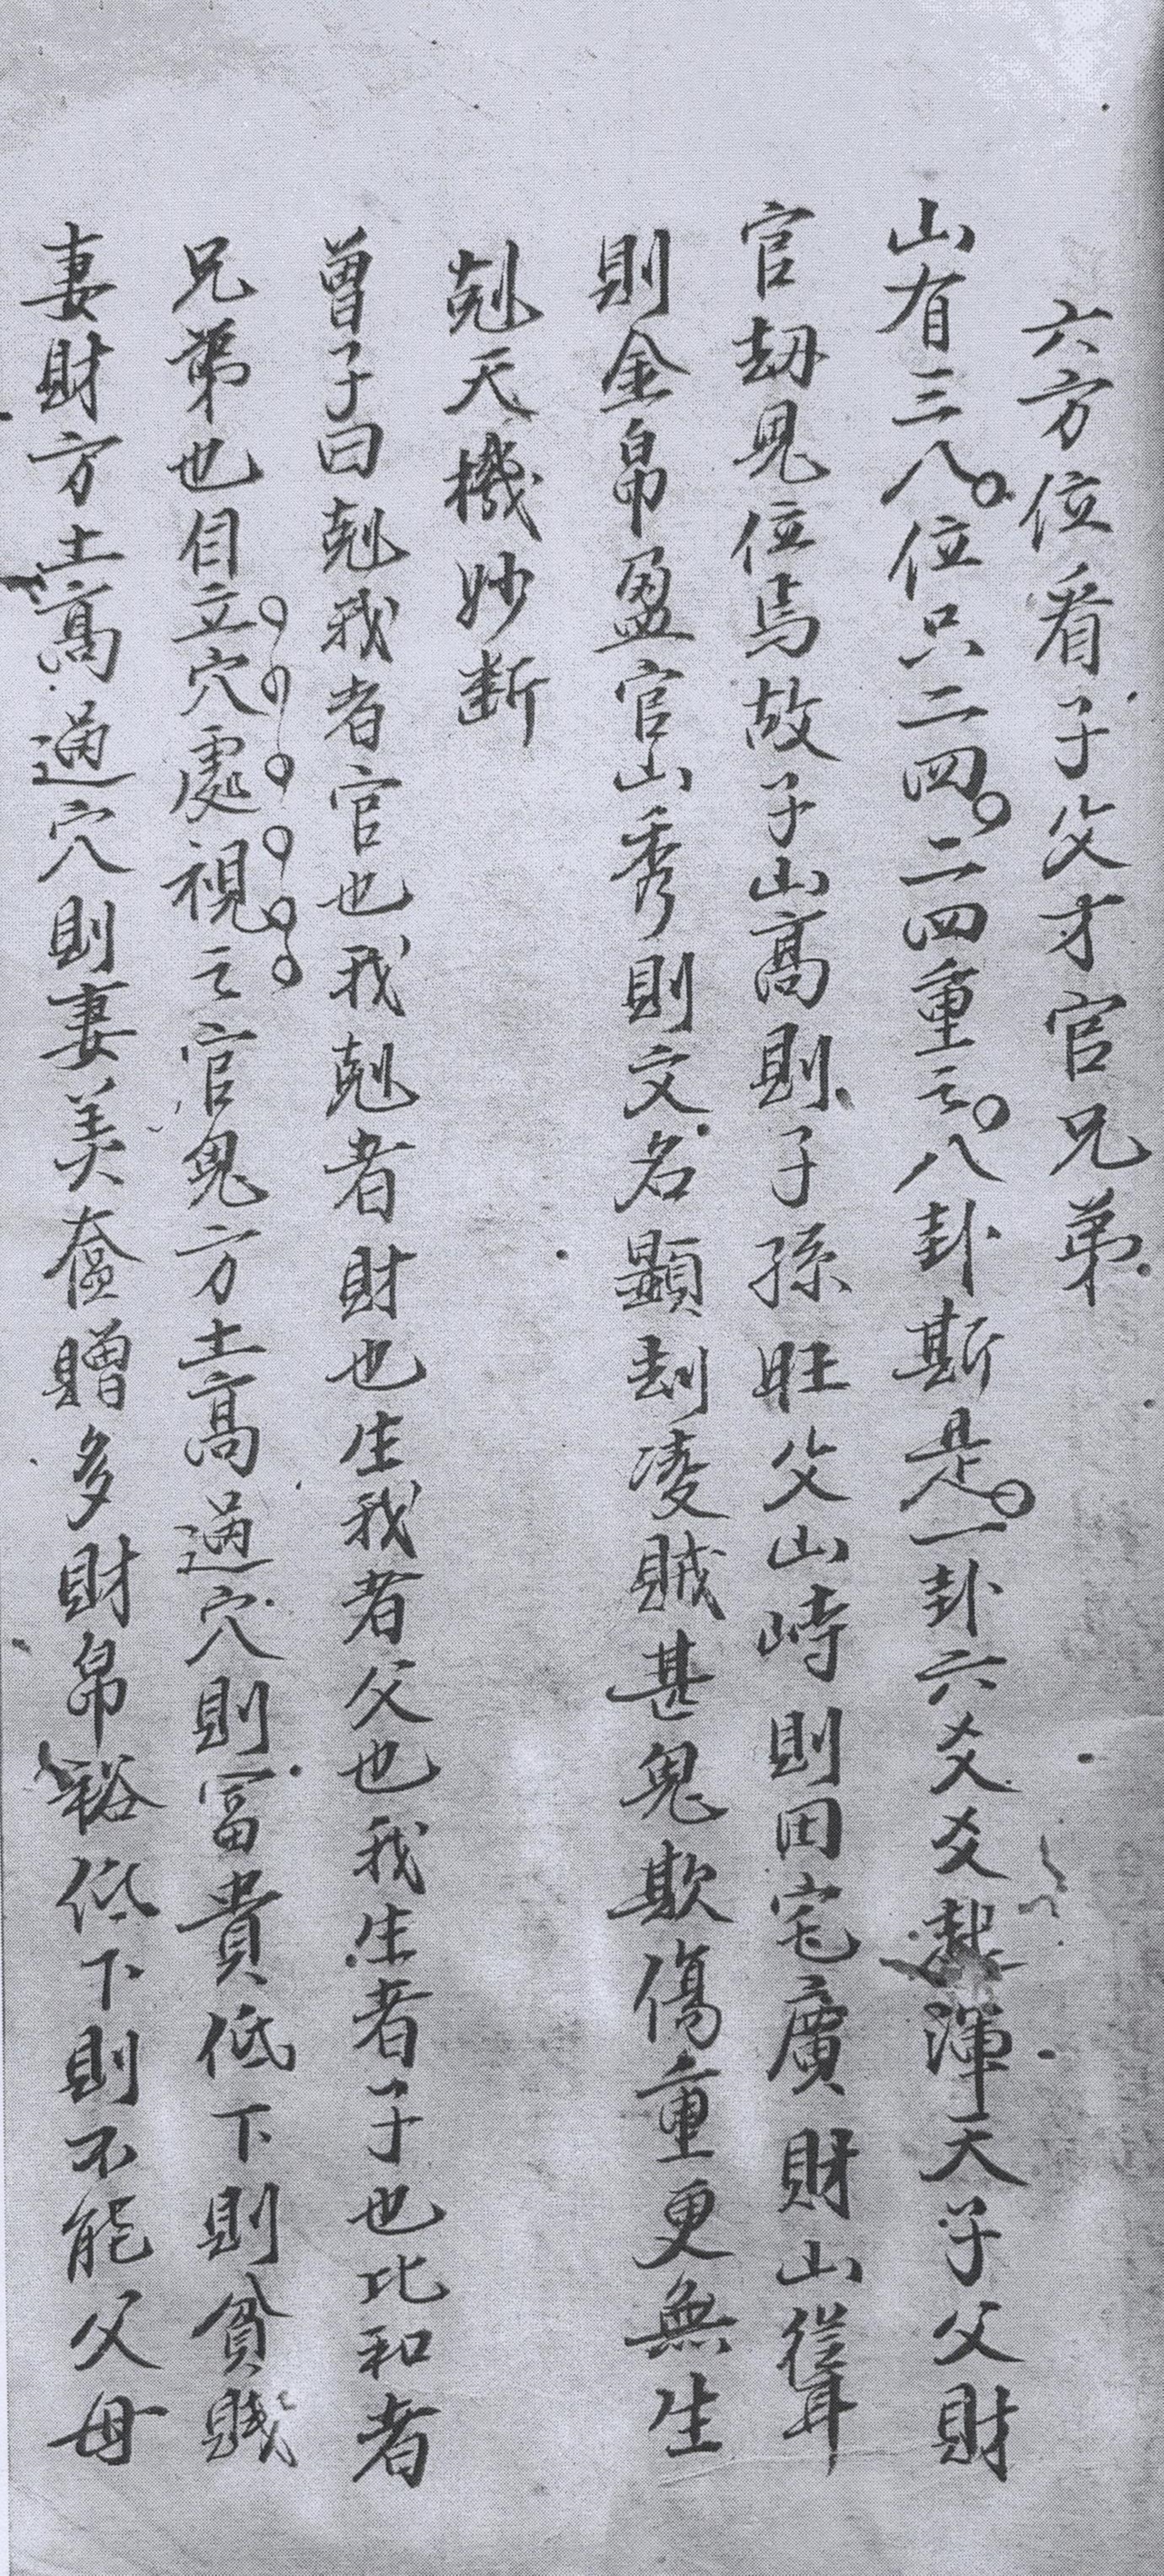 六方位看子父才官兄弟
山有三八。位只二四。二四重之。八卦斯是。一卦六爻爻起渾天子父財
官劫見位焉故子山高則子孫旺父山峙則田宅廣財山聳
則金帛盈官山秀則文名顯刦凌賊甚鬼欺傷重更無生
剋天機妙断
曾子曰剋我者官也我剋者財也生我者父也我生者子也比和者
兄弟也自立穴處視之官鬼方土高過穴則富貴低下則貧賤
妻財方土高過穴則妻美奩贈多財帛裕低下則不能父母